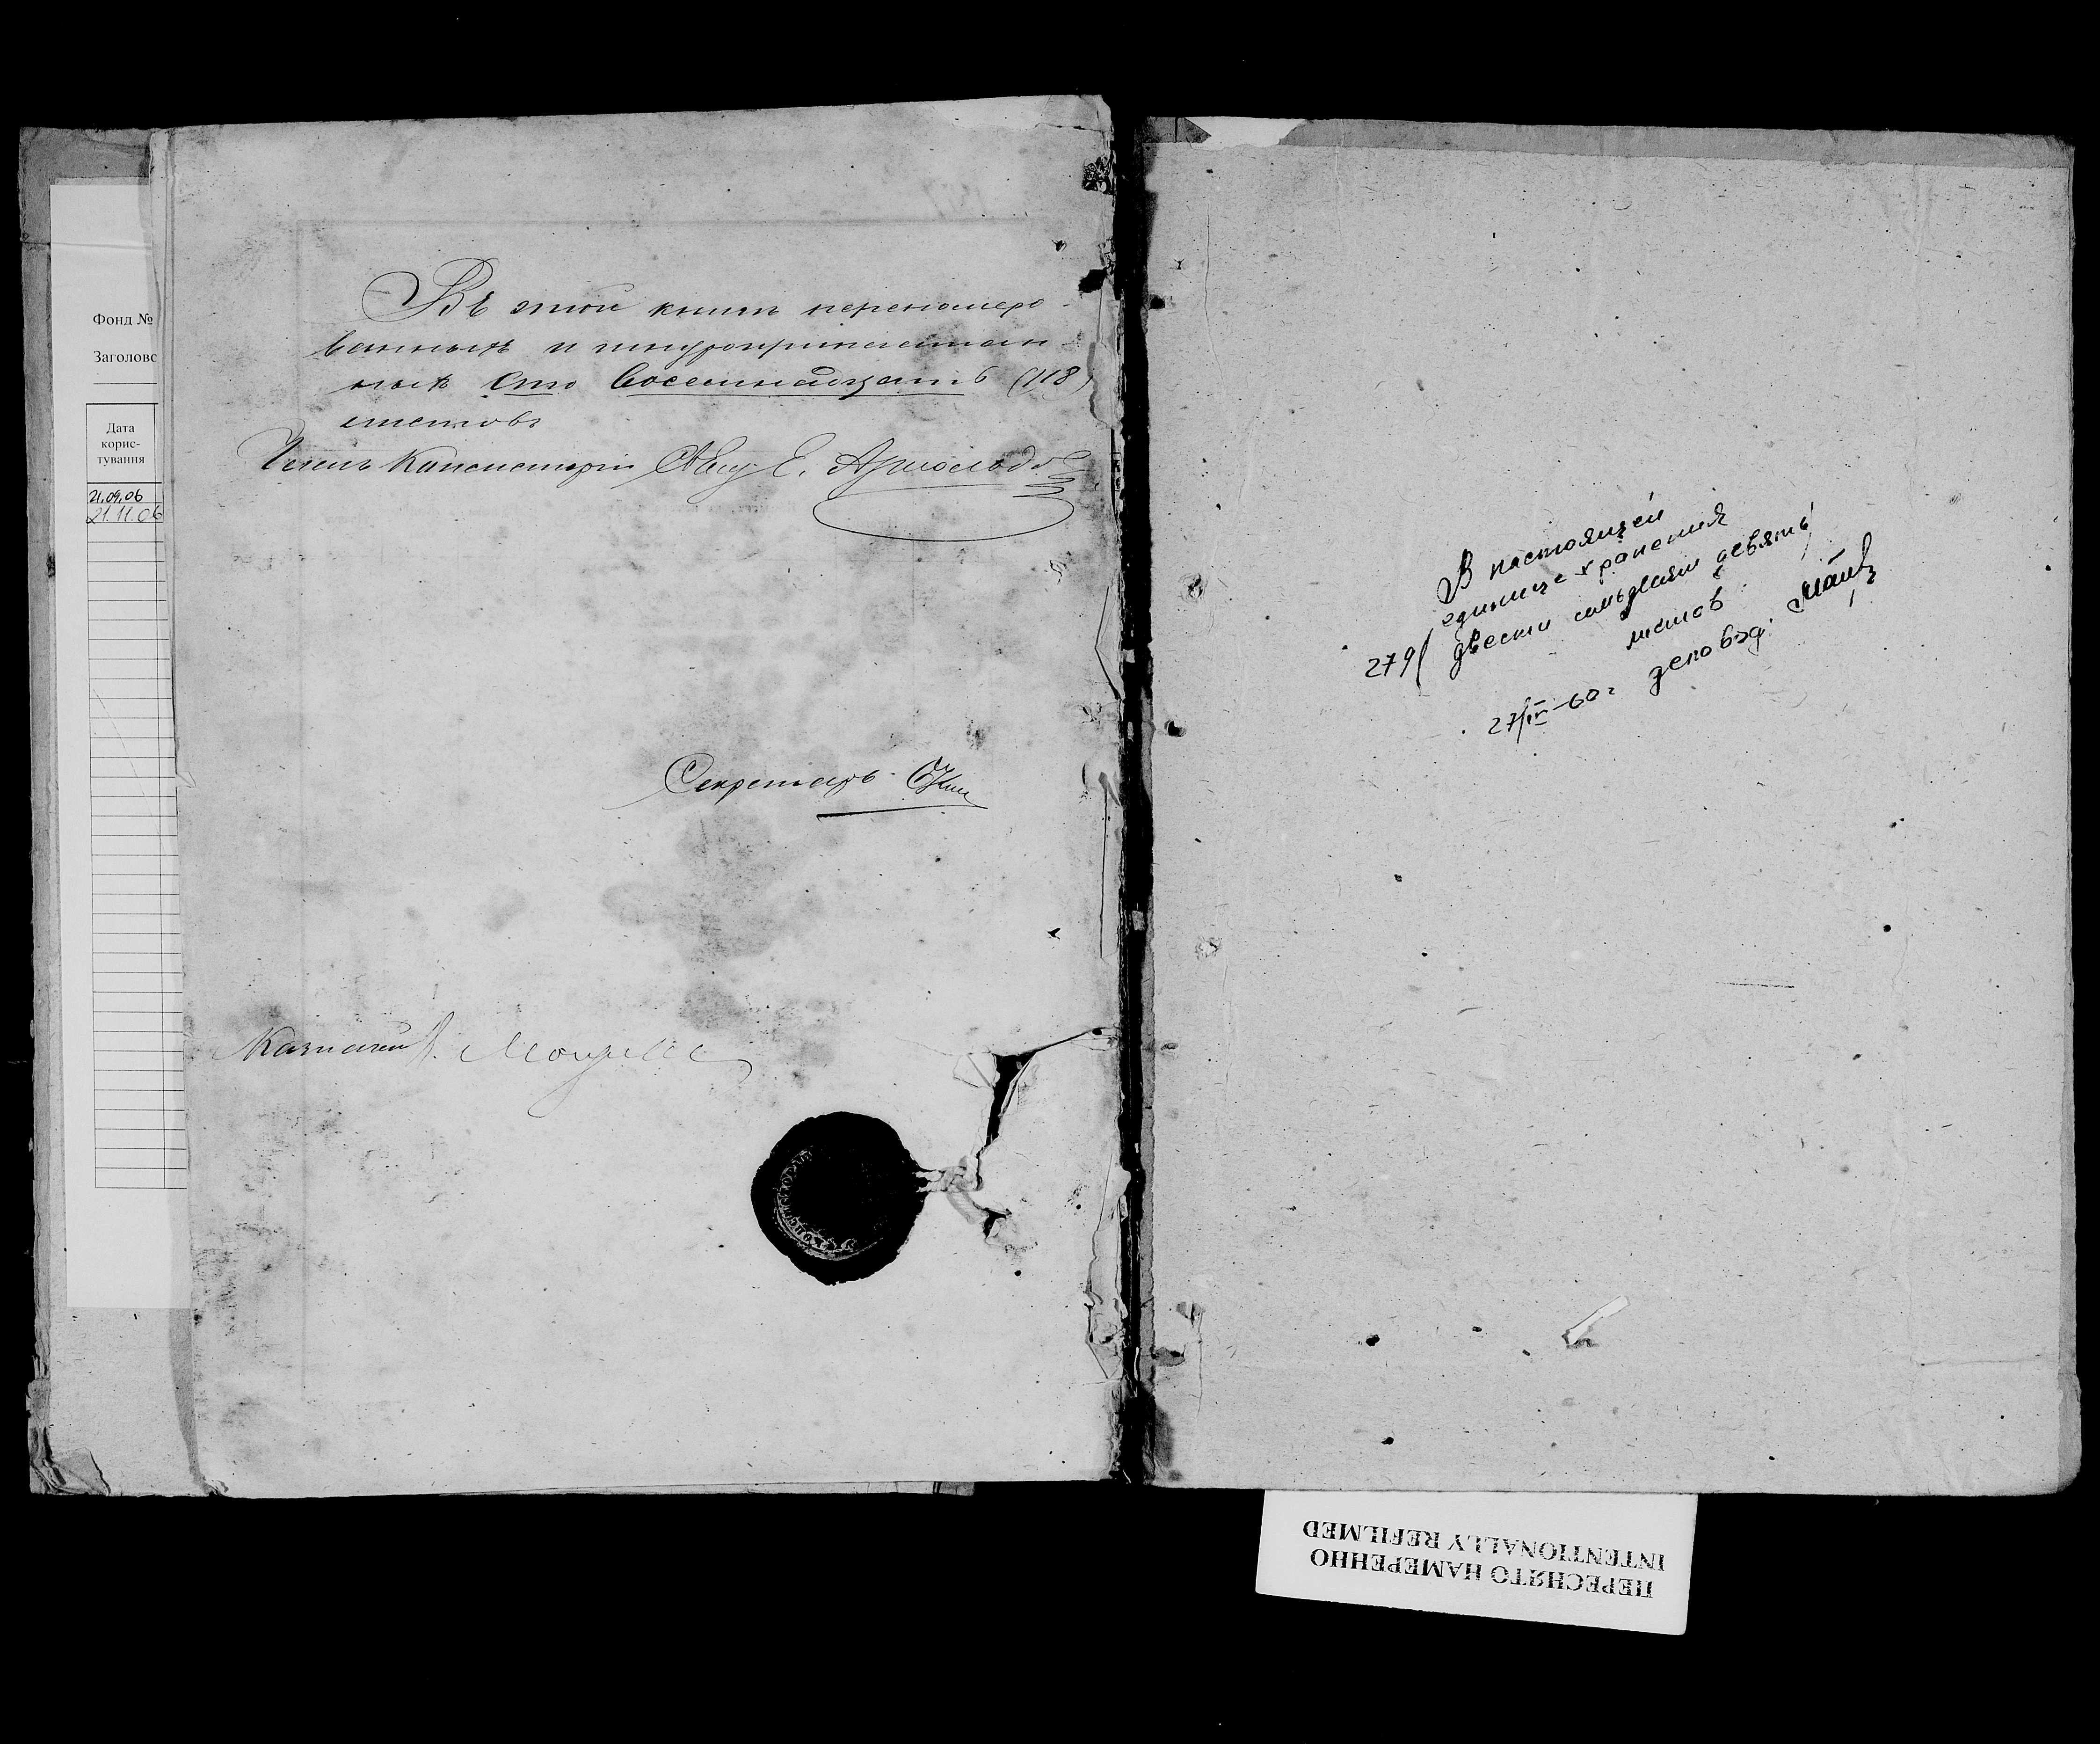 Фонд №
Заголовс
Дата
корис-
тування
21.09.06
21.11.06
Въ этой книгѣ перенумеро-
ванныхъ и шнуроприпечатан-
ныхъ сто восемнадцать (118)
листовъ
Членъ Консисторіи Свящ. Е. Арнольдовъ
Секретарь
Казначей
В настоящей
единице хранения
279/ двести семьдесят девять/
листов
27/IV-60г деловод.
ПЕРЕСНЯТО НАМЕРЕННО
INTENTIONALLY REFILMED